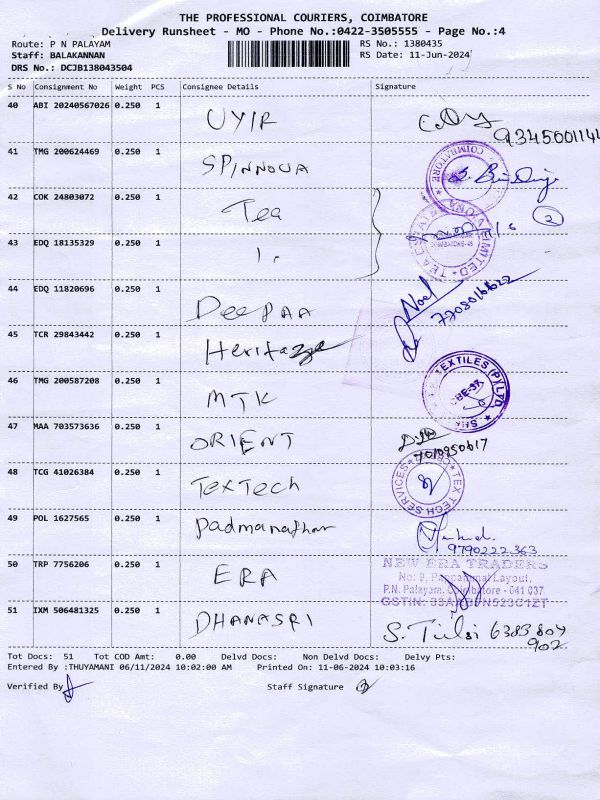 THE PROFESSIONAL COURIERS, COIMBATORE
Delivery Runsheet - MO - Phone No.:0422-3505555 - Page No.:4
Route: P N PALAYAM RS No.: 1380435
Staff: BALAKANNAN RS Date: 11-Jun-2024
DRS No.: DCJB138043504
S No Consignment No Weight PCS Consignee Details Signature
40 ABI 20240567026 0.250 1 UYIR
9345001144
41 TMG 200624469 0.250 1 SPINNOVA
COIMBATORE
42 COK 24803072 0.250 1 Tea
2
43 EDQ 18135329 0.250 1 1.
44 EDQ 11820696 0.250 1 DeePAA Noel
45 TCR 29843442 0.250 1 Heritage
46 TMG 200587208 0.250 1 MTK
TEXTILES (P) LTD
47 MAA 703573636 0.250 1 ORIENT
7010950617
48 TCG 41026384 0.250 1 TexTech
TEX TECH SERVICES
49 POL 1627565 0.250 1 Padmanathan
9790222363
50 TRP 7756206 0.250 1 ERA
NEW ERA TRADERS
No: 9, Layout,
P.N. Palayam, Coimbatore - 641 037
GSTIN:
51 IXM 506481325 0.250 1 DHANASRI
S. Tulsi 6383809
902
Tot Docs: 51 Tot COD Amt: 0.00 Delvd Docs: Non Delvd Docs: Delvy Pts:
Entered By :THUYAMANI 06/11/2024 10:02:00 AM Printed On: 11-06-2024 10:03:16
Verified By Staff Signature